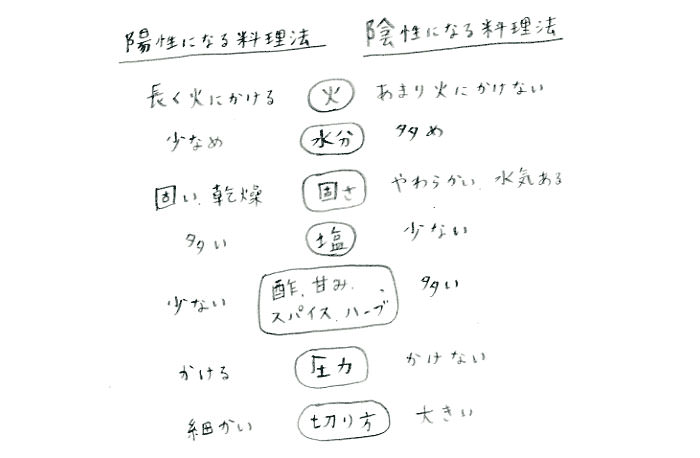 陽性になる料理法 陰性になる料理法
長く火にかける 火 あまり火にかけない
少なめ 水分 多め
固い、乾燥 固さ やわらかい、水気ある
多い 塩 少ない
少ない 酢、甘み、 多い
スパイス、ハーブ
かける 圧力 かけない
細かい 切り方 大きい